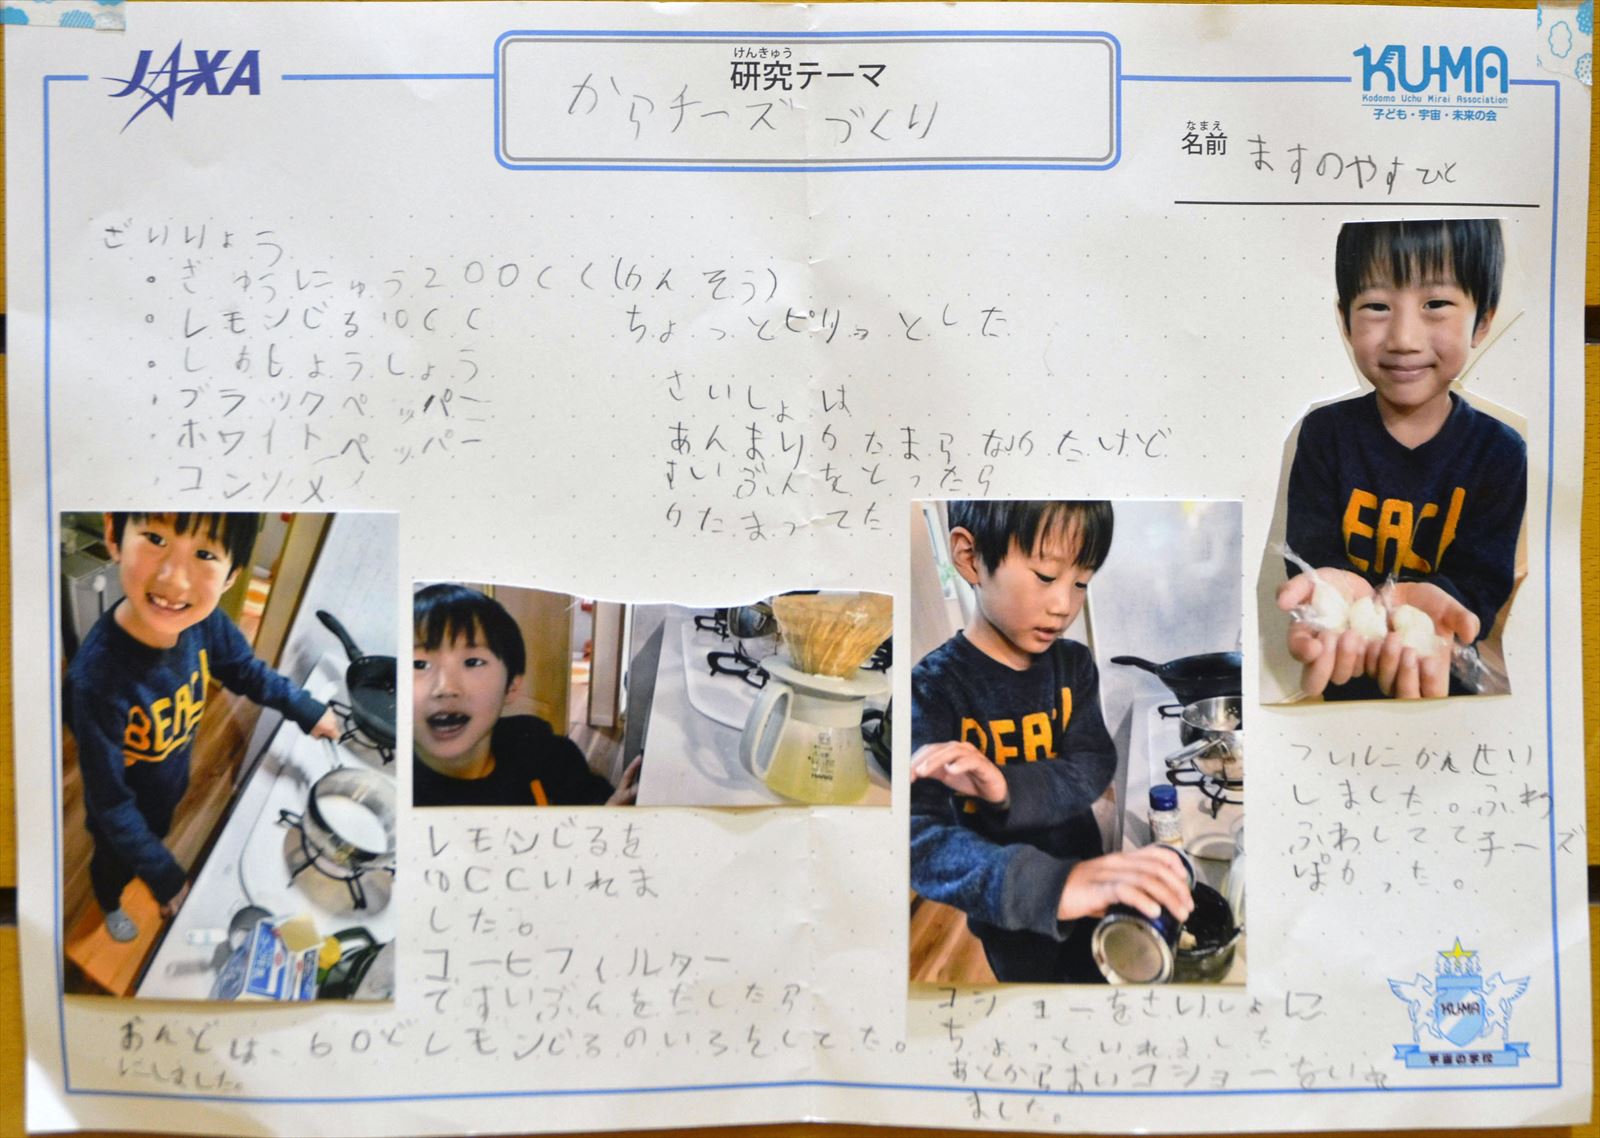 JAXA
けんきゅう
研究テーマ
からチーズ づくり
KU-MA
Kodomo Uchu Mirai Association
子ども・宇宙・未来の会
なまえ
名前 ますのやすひと
ざいりょう
ぎゅうにゅう200CC (かんそう)
レモンじる10CC ちょっとピリッとした
しおしょうしょう
ブラックペッパー
ホワイトペッパー
コンソメ
さいしょは
あんまりかたまらなかたけど
すいぶんをとったら
かたまってた
BEACH
おんどは、60ど
にしました。
レモンじるを
10CCいれま
した。
コーヒフィルター
ですいぶんをだしたら
レモンじるのいろをしてた。
コショーをさいしょに
ちょっといれました
あとからおいコショーをいれ
ました。
ついにかんせい
しました。ふわ
ふわしててチーズ
ぽかった。
KU-MA
宇宙の学校